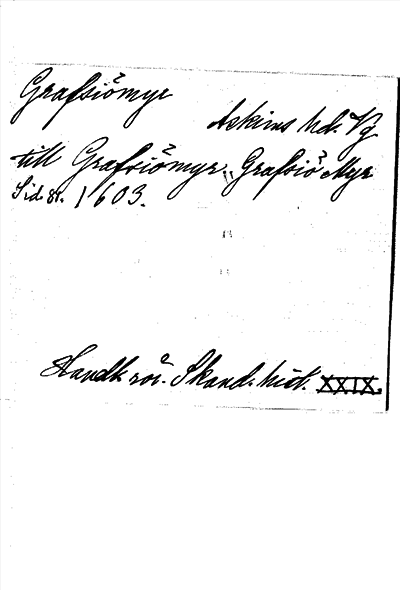 Grafsiŏmyr
Askims hd. Vg
till Grafsiŏmyr, Grafsiŏ Myr
Sid. 81. 1603.
Handl. rör. Skand. hist. XXIX.